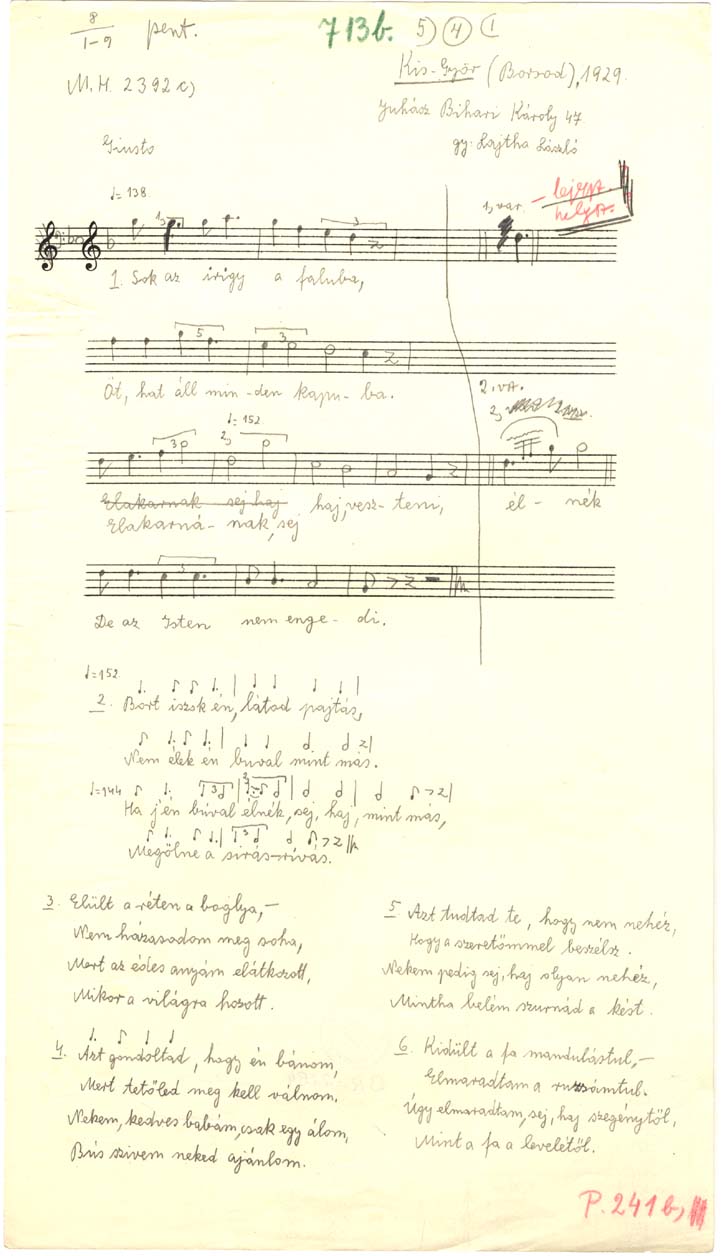 8
1-9 pent.
713b. 5) 4 1
M.H. 2392 c)
Kis-Győr (Borsod), 1929.
Juhász Bihari Károly 47
Giusto
gy: Lajtha László
♩= 138
1, var.
1. Sok az irigy a faluba,
Öt, hat áll min-den kapu-ba.
♩= 152
2. va.
Elakarnak sej haj haj, vesz-teni, él-nék
Elakarná-nak, sej
De az Isten nem enge-di.
♩=152
2. Bort iszok én, látod pajtás,
Nem élek én búval mint más.
♩=144
Ha j'én búval élnék, sej, haj, mint más,
Megölne a sirás-rívás.
3. Elült a réten a boglya,-
Nem házasodom meg soha,
Mert az édes anyám elátkozott,
Mikor a világra hozott.
4. Azt gondoltad, hogy én bánom,
Mert tetőled meg kell válnom.
Nekem, kedves babám, csak egy álom,
Bús szivem neked ajánlom.
5 Azt tudtad te, hogy nem nehéz,
Hogy a szeretőmmel beszélsz.
Nekem pedig sej, haj olyan nehéz,
Mintha belém szurnád a kést.
6. Kidült a fa mandulástul,-
Elmaradtam a ruzsámtul.
Úgy elmaradtam, sej, haj szegénytől,
Mint a fa a levelétől.
P. 241b,